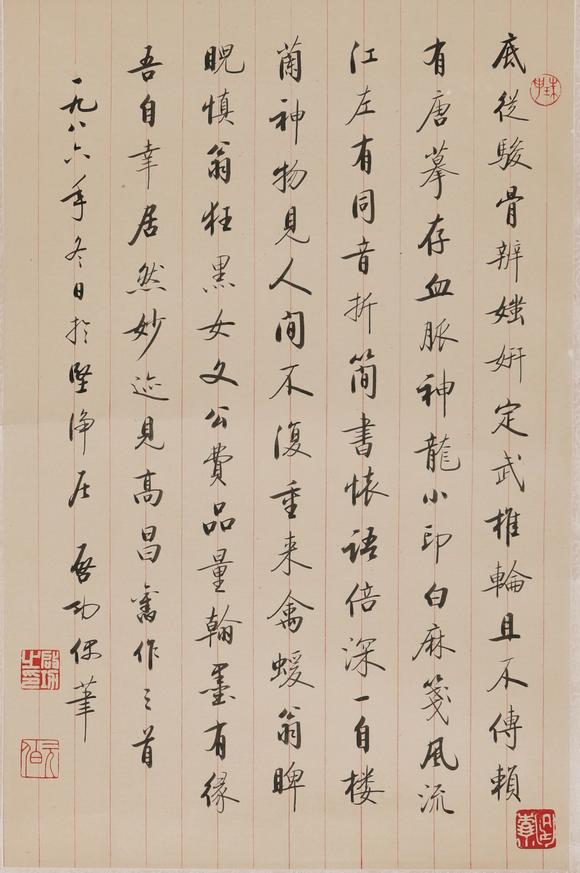 底從駿骨辨媸妍定武椎輪且不傳賴
有唐摹存血脈神龍小印白麻箋風流
江左有同音折簡書懷語倍深一自楼
蘭神物見人間不復重来禽蝯翁睥
睨慎翁狂黑女文公費品量翰墨有緣
吾自幸居然妙迹見高昌舊作三首
一九八六年冬日於堅淨居 啓功偶筆
啟功之印
元伯
珠申